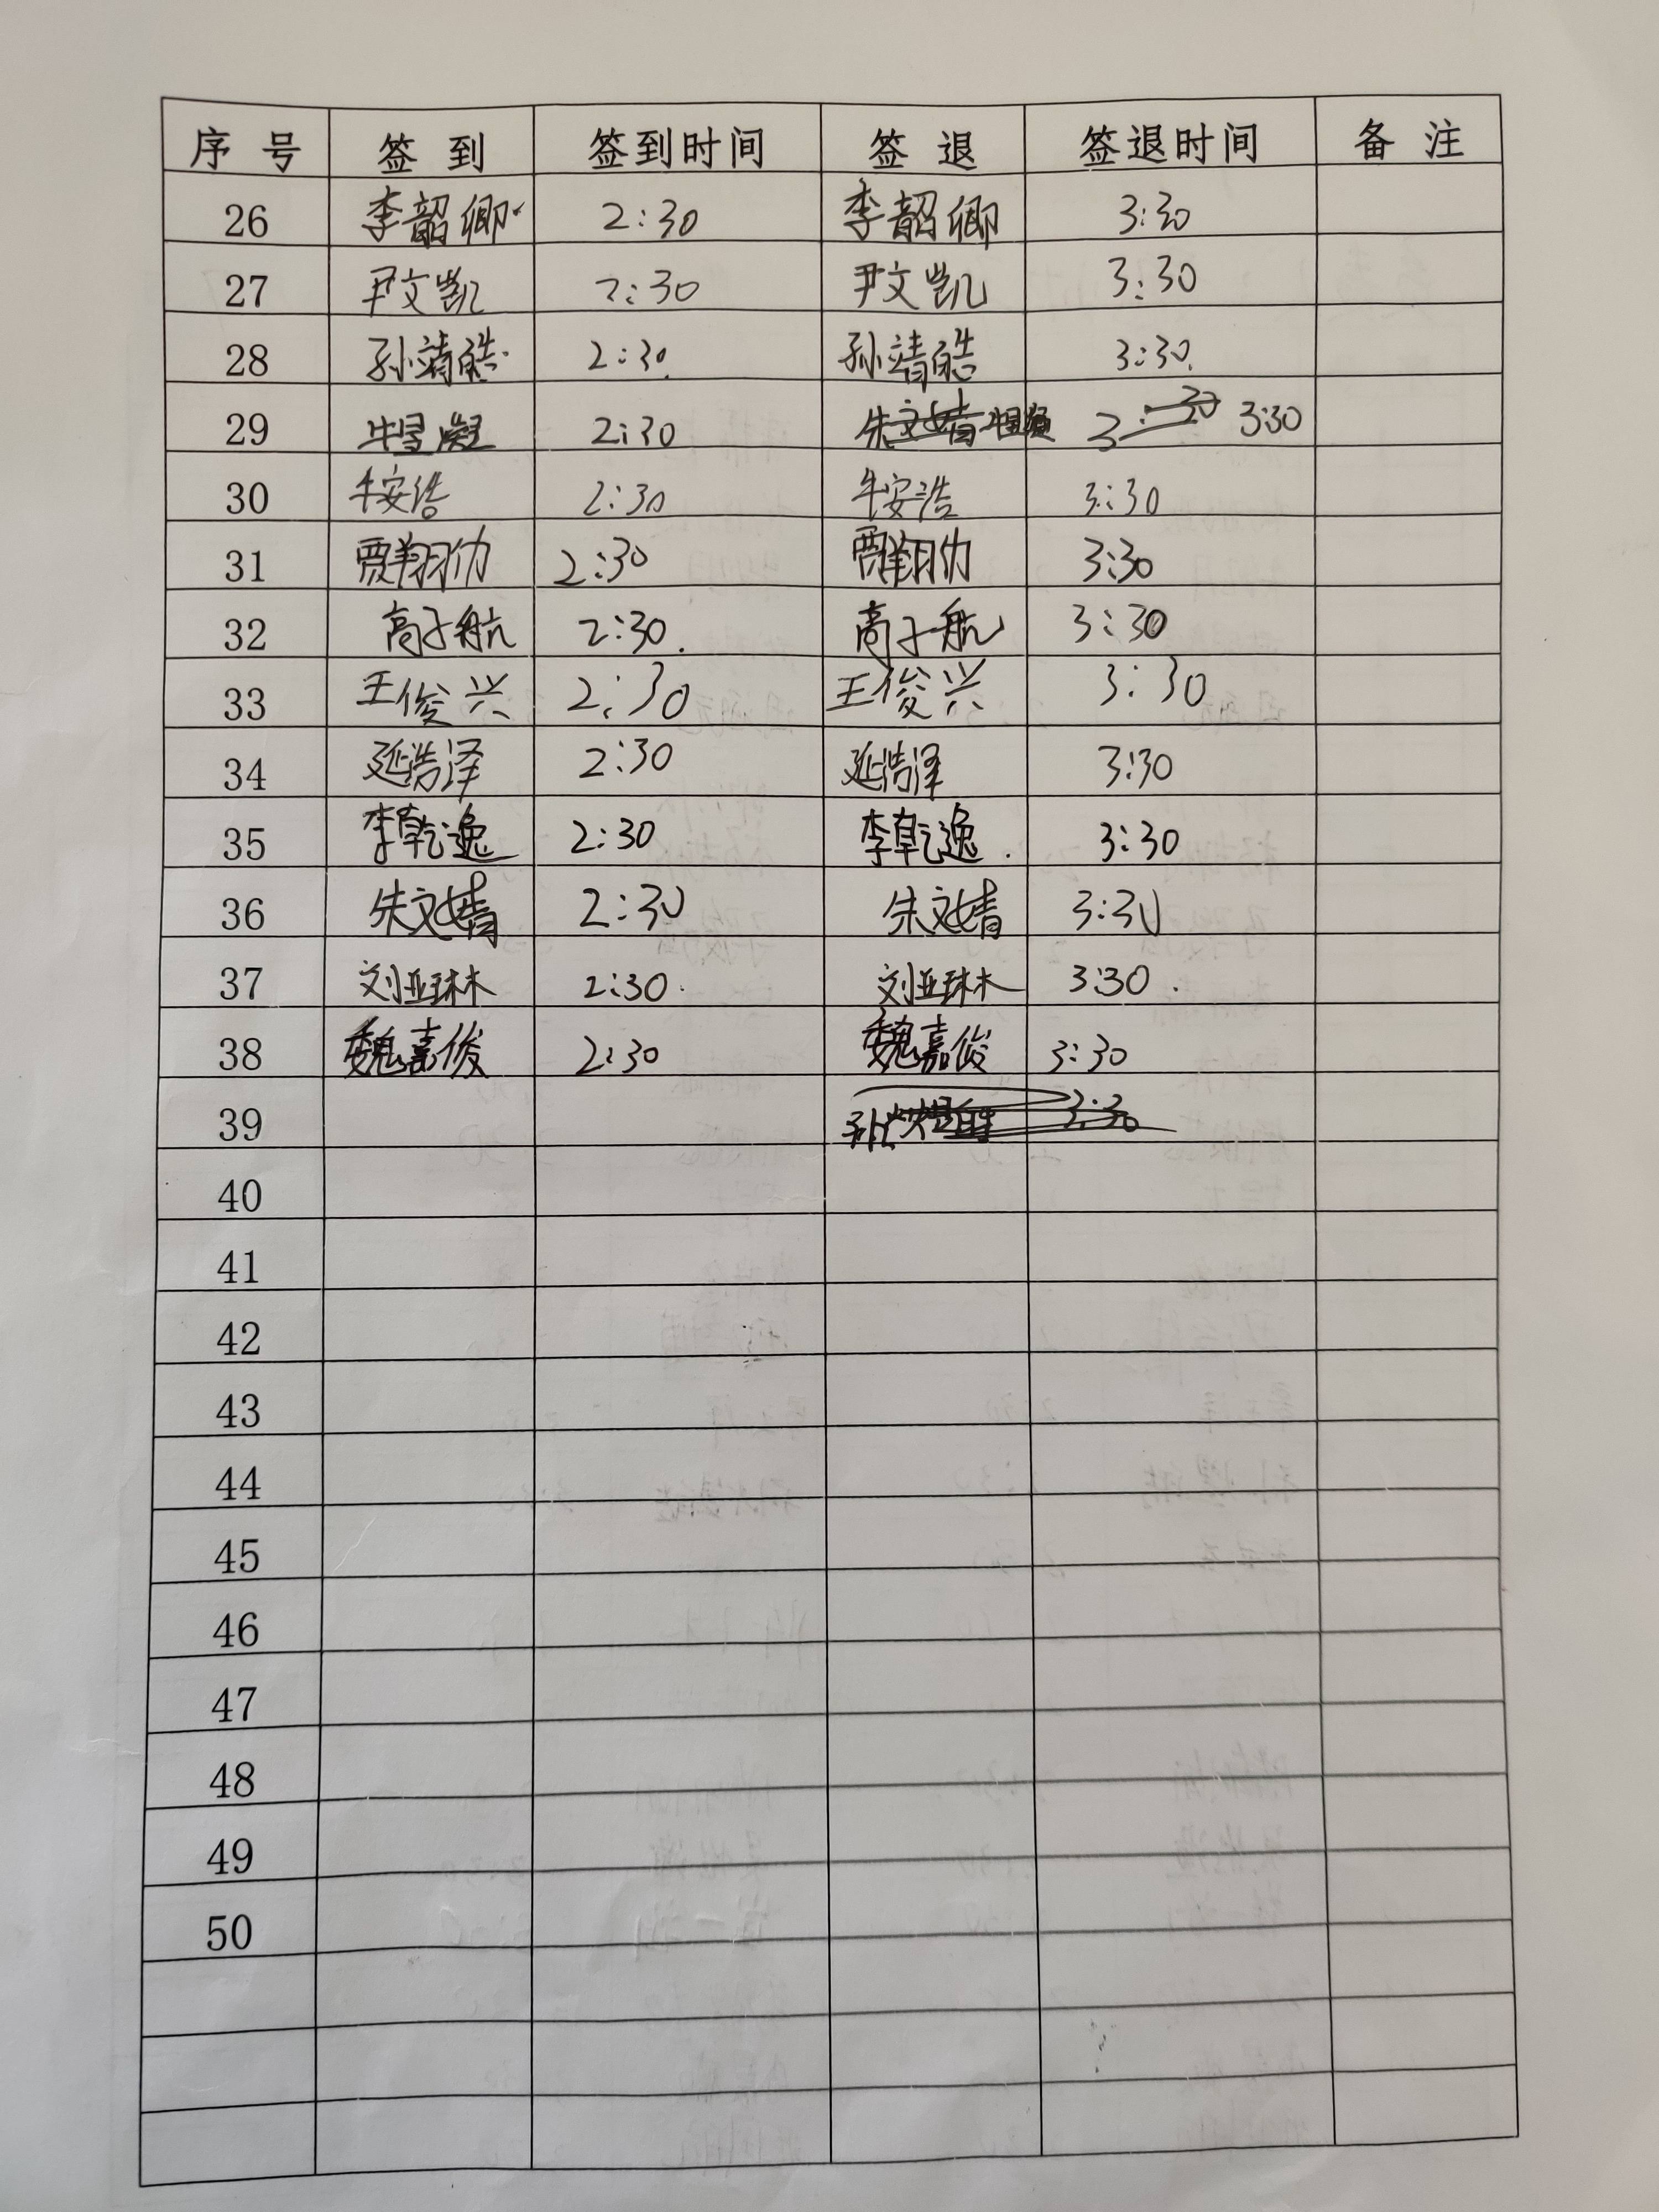 序 号 签 到 签到时间 签 退 签退时间 备 注
26 李韶卿 2:30 李韶卿 3:30
27 尹文凯 2:30 尹文凯 3:30
28 孙靖皓 2:30. 孙靖皓 3:30.
29 2:30 朱文婧 3:30 3:30
30 牛安浩 2:30 牛安浩 3:30
31 贾翔 2:30 贾翔 3:30
32 高子航 2:30. 高子航 3:30
33 王俊兴 2:30 王俊兴 3:30
34 延浩泽 2:30 延浩泽 3:30
35 李乾逸 2:30 李乾逸. 3:30
36 朱文婧 2:30 朱文婧 3:30
37 刘亚琳 2:30. 刘亚琳 3:30.
38 魏嘉俊 2:30 魏嘉俊 3:30
39 3:30
40
41
42
43
44
45
46
47
48
49
50